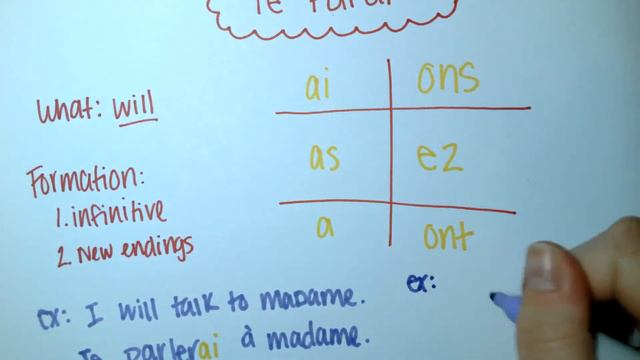 What: will
ai ons
as ez
a ont
Formation:
1. infinitive
2. New endings
ex: I will talk to madame.
Je parlerai à madame.
ex: